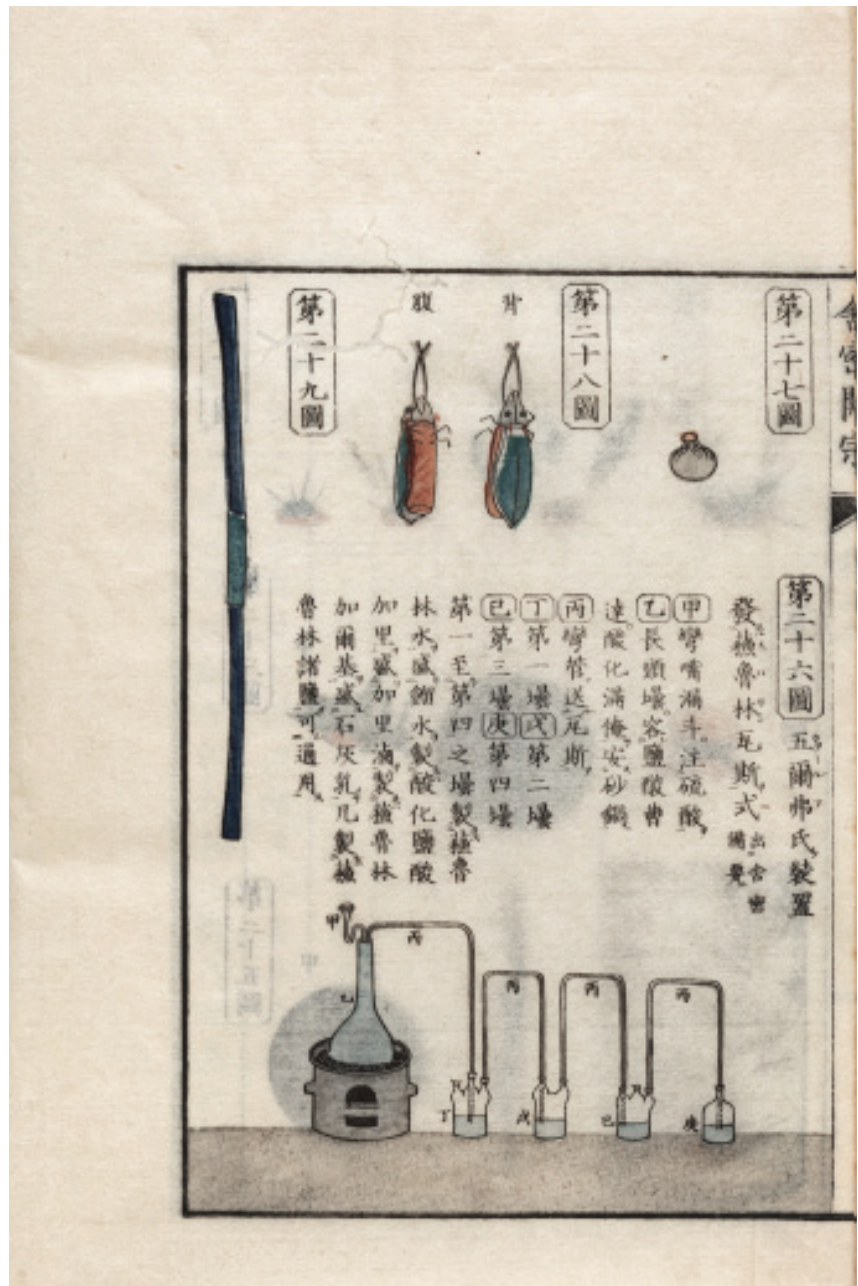 舎密開宗
第二十七圖
第二十八圖
背
腹
第二十九圖
第二十六圖 五爾弗氏裝置
發塩魯林瓦斯式 出舎密備覽
甲 彎嘴漏斗注硫酸
乙 長頸壜容鹽酸曹
達酸化滿俺安砂鍋
丙 彎管送瓦斯
丁 第一壜 戊 第二壜
己 第三壜 庚 第四壜
第一至第四之壜製塩魯
林水盛餾水製酸化鹽酸
加里盛加里滷製塩魯林
加爾基盛石灰乳凡製塩
魯林諸鹽可通用
甲
丙
乙
丙
丙
丙
丁
戊
己
庚